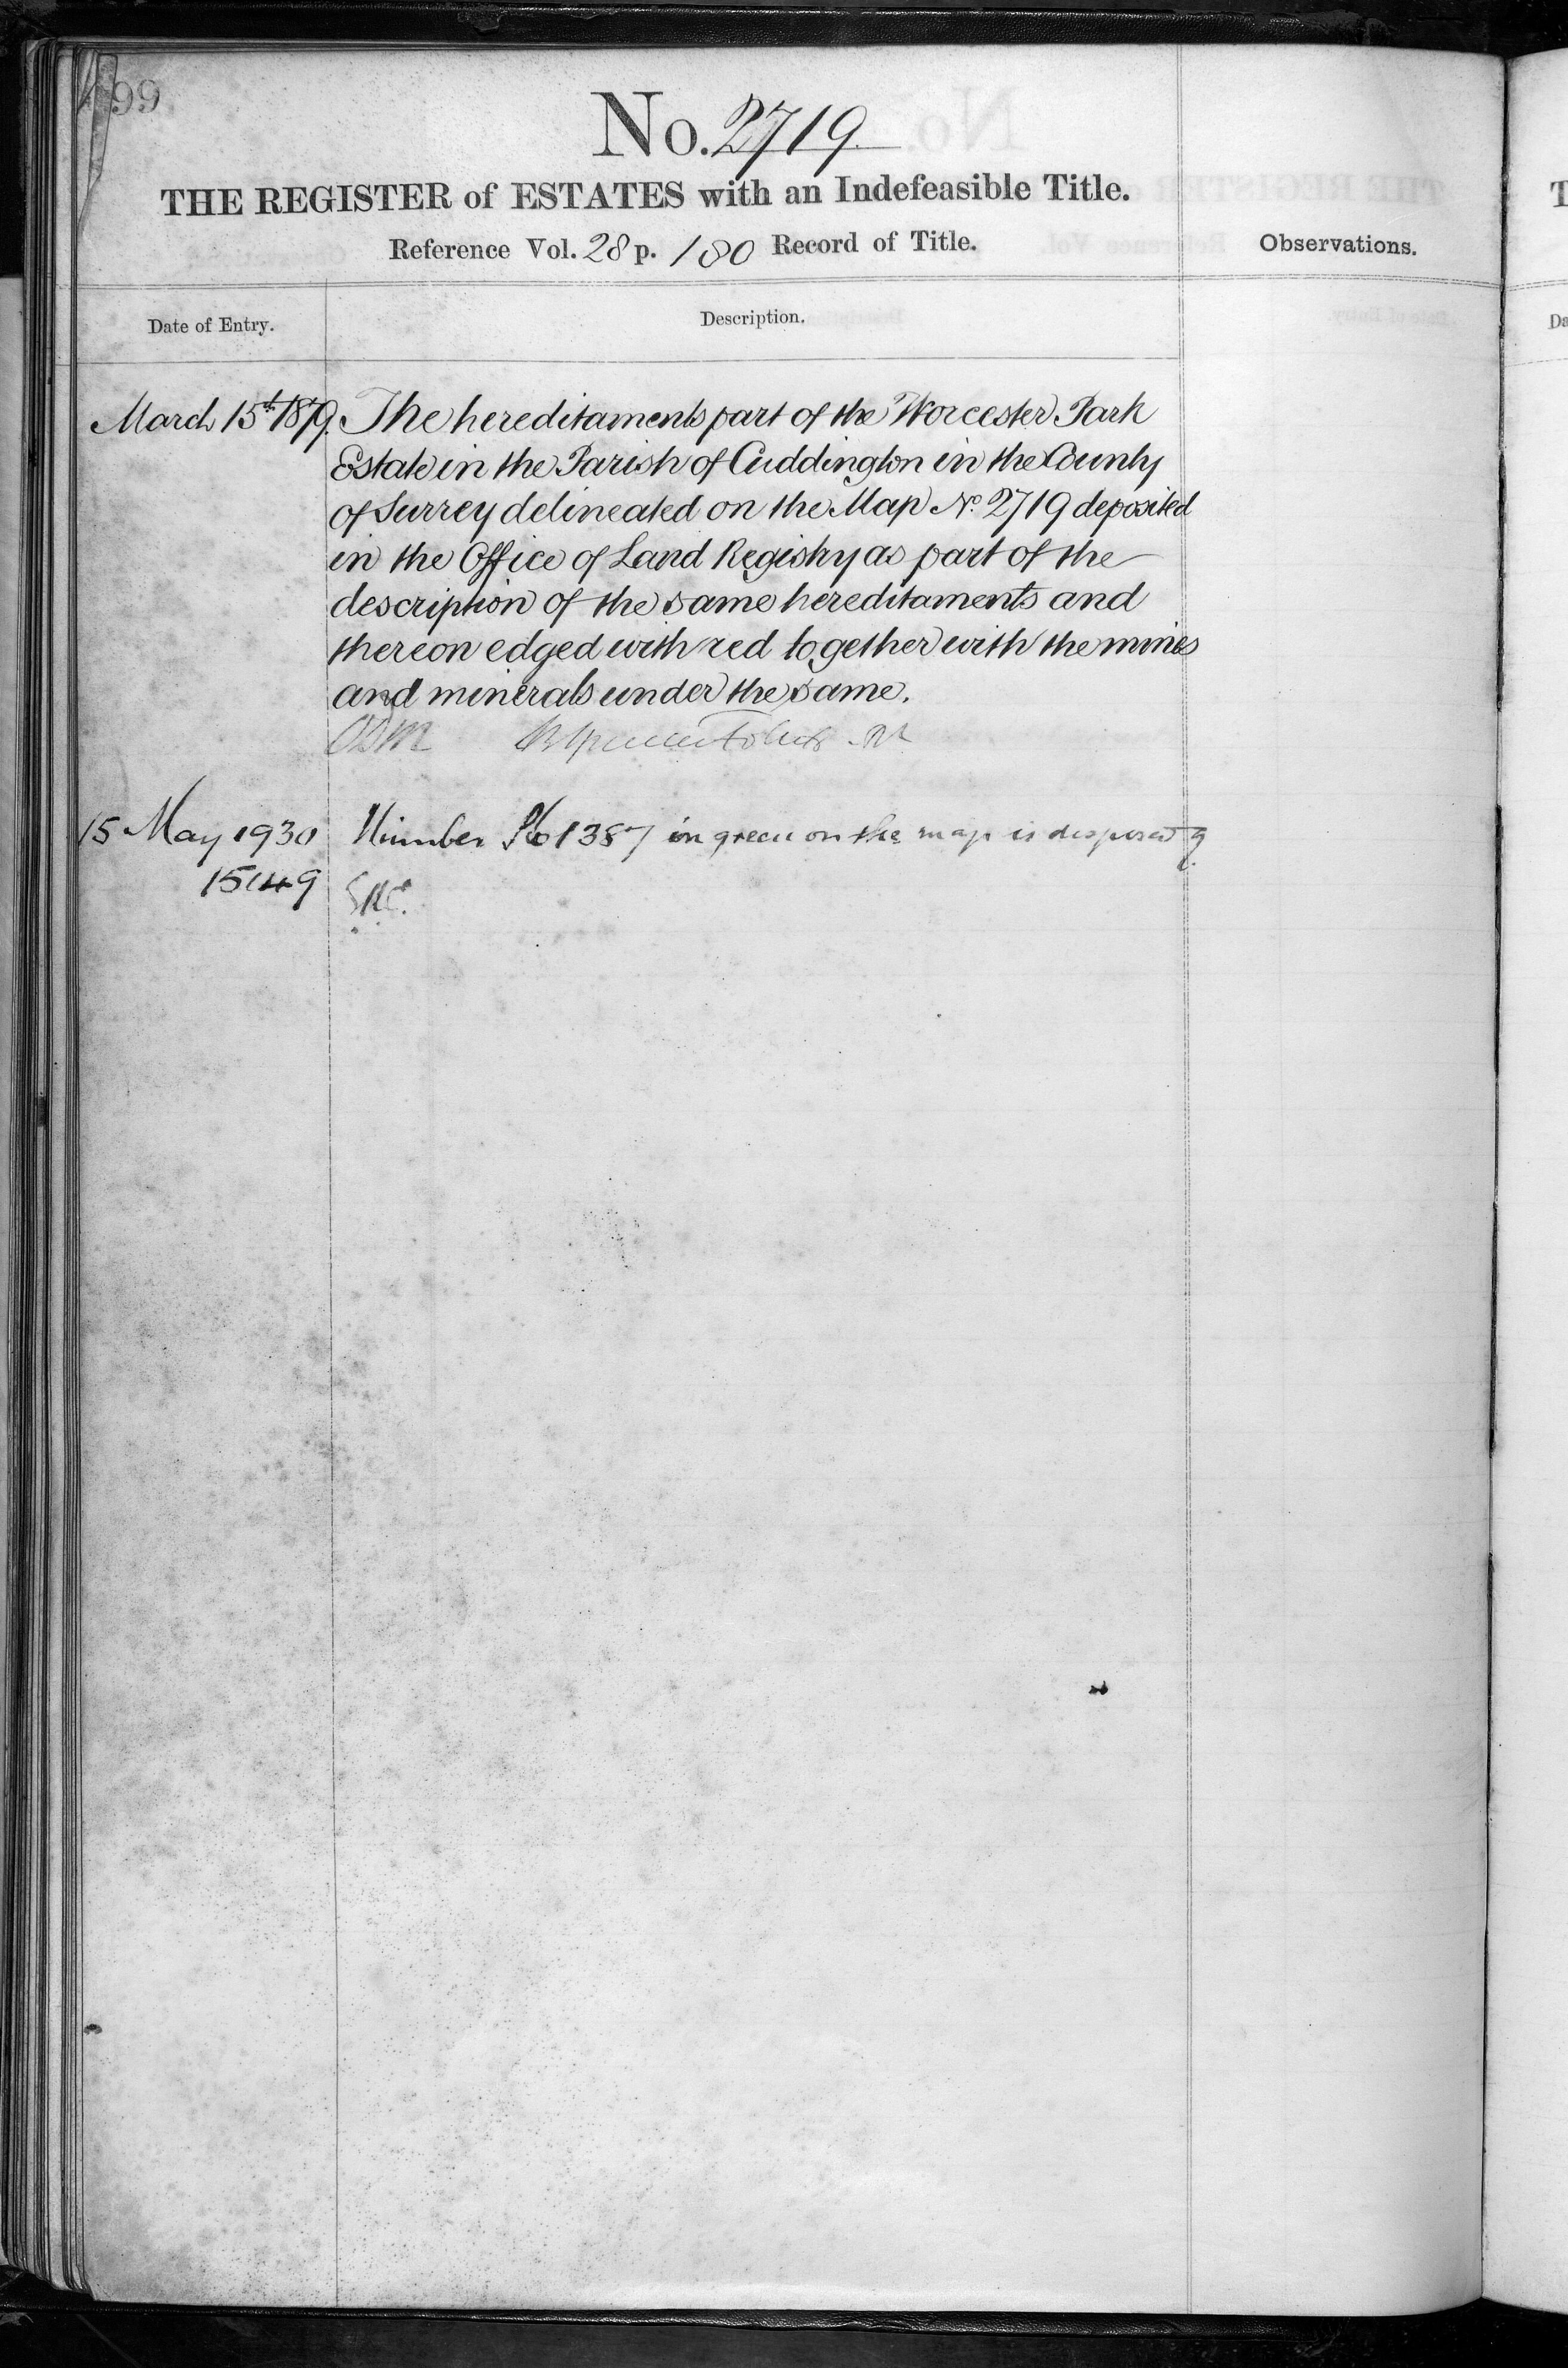 499
No. 2719.
THE REGISTER of ESTATES with an Indefeasible Title.
Reference Vol. 28 p. 180 Record of Title.
Observations.
Date of Entry.
Description.
March 15th 1879. The hereditaments part of the Worcester Park
Estate in the Parish of Cuddington in the County
of Surrey delineated on the Map No. 2719 deposited
in the Office of Land Registry as part of the
description of the same hereditaments and
thereon edged with red together with the mines
and minerals under the same.
15 May 1930 Number 1387 in green on the map is disposed of